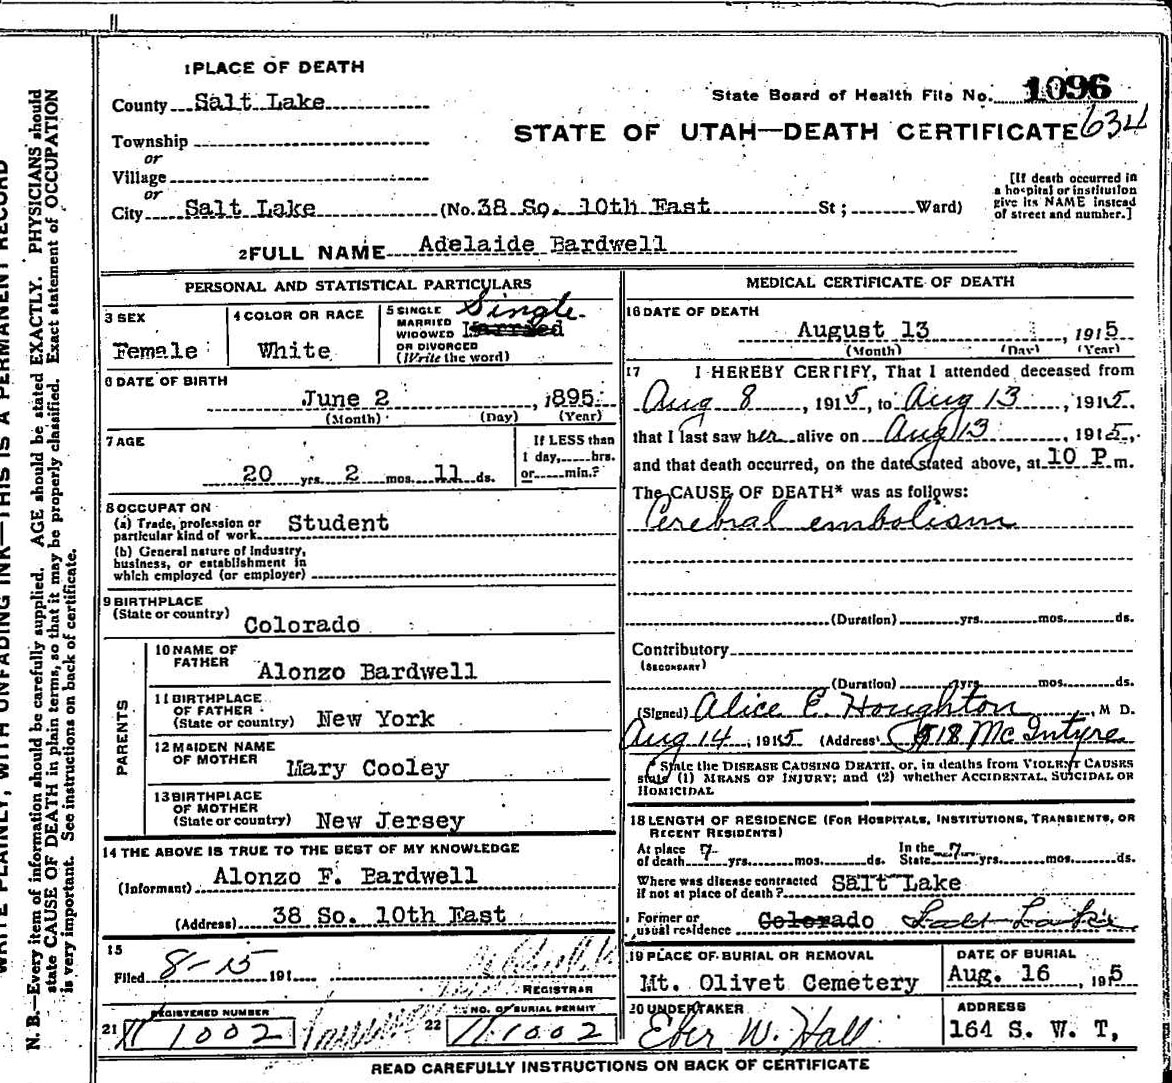 WRITE PLAINLY, WITH UNFADING INK—THIS IS A PERMANENT RECORD
N. B.—Every item of information should be carefully supplied. AGE should be stated EXACTLY. PHYSICIANS should
state CAUSE OF DEATH in plain terms, so that it may be properly classified. Exact statement of OCCUPATION
is very important. See instructions on back of certificate.
1 PLACE OF DEATH
County Salt Lake
State Board of Health File No. 1096
Township
STATE OF UTAH—DEATH CERTIFICATE 634
or
Village
or
City Salt Lake (No. 38 So. 10th East St; Ward)
[If death occurred in
a hospital or institution
give its NAME instead
of street and number.]
2 FULL NAME Adelaide Bardwell
PERSONAL AND STATISTICAL PARTICULARS
3 SEX
Female
4 COLOR OR RACE
White
5 SINGLE
MARRIED
WIDOWED
OR DIVORCED
(Write the word)
Single
Married
6 DATE OF BIRTH
June 2, 1895
(Month) (Day) (Year)
7 AGE
20 yrs. 2 mos. 11 ds.
If LESS than
1 day, hrs.
or min.?
8 OCCUPATON
(a) Trade, profession or
particular kind of work Student
(b) General nature of Industry,
business, or establishment in
which employed (or employer)
9 BIRTHPLACE
(State or country) Colorado
PARENTS
10 NAME OF
FATHER Alonzo Bardwell
11 BIRTHPLACE
OF FATHER
(State or country) New York
12 MAIDEN NAME
OF MOTHER Mary Cooley
13 BIRTHPLACE
OF MOTHER
(State or country) New Jersey
14 THE ABOVE IS TRUE TO THE BEST OF MY KNOWLEDGE
(Informant) Alonzo F. Bardwell
(Address) 38 So. 10th East
15
Filed 8-15 191
REGISTRAR
21 REGISTERED NUMBER
1002
22 NO. OF BURIAL PERMIT
1002
MEDICAL CERTIFICATE OF DEATH
16 DATE OF DEATH
August 13, 1915
(Month) (Day) (Year)
17 I HEREBY CERTIFY, That I attended deceased from
Aug 8, 1915, to Aug 13, 1915.
that I last saw her alive on Aug 13 1915,
and that death occurred, on the date stated above, at 10 P. m.
The CAUSE OF DEATH* was as follows:
Cerebral embolism
(Duration) yrs. mos. ds.
Contributory
(SECONDARY)
(Duration) yrs. mos. ds.
(Signed) Alice E. Houghton, M D.
Aug 14, 1915 (Address) 918 McIntyre
* State the DISEASE CAUSING DEATH, or, in deaths from VIOLENT CAUSES
state (1) MEANS OF INJURY; and (2) whether ACCIDENTAL, SUICIDAL OR
HOMICIDAL
18 LENGTH OF RESIDENCE (FOR HOSPITALS, INSTITUTIONS, TRANSIENTS, OR
RECENT RESIDENTS)
At place
of death 7 yrs. mos. ds. In the
State 7 yrs. mos. ds.
Where was disease contracted
if not at place of death? Salt Lake
Former or
usual residence Colorado Salt Lake
19 PLACE OF BURIAL OR REMOVAL
Mt. Olivet Cemetery
DATE OF BURIAL
Aug. 16, 1915
20 UNDERTAKER
Eber W. Hall
ADDRESS
164 S. W. T,
READ CAREFULLY INSTRUCTIONS ON BACK OF CERTIFICATE